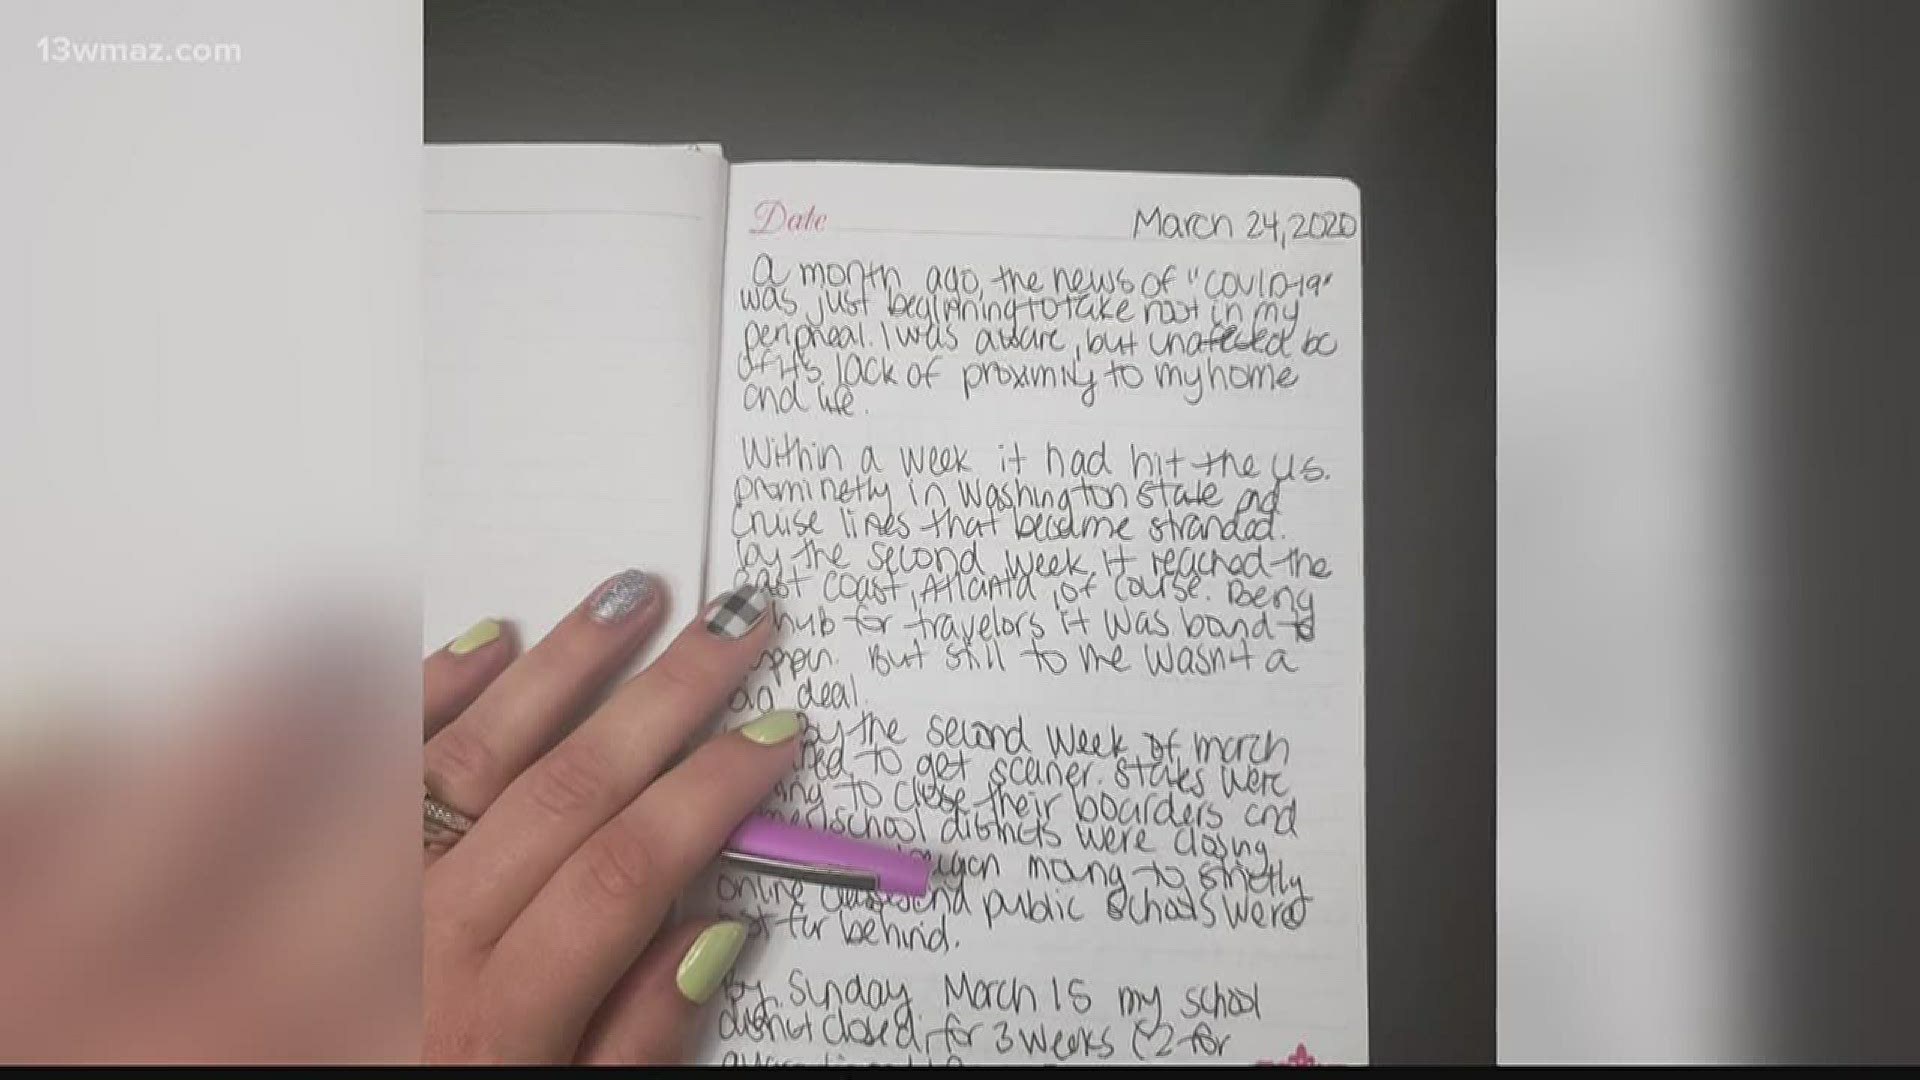 13wmaz.com
Date
March 24, 2020
A month ago, the news of "COVID-19"
was just beginning to take root in my
peripheal. I was aware, but unaffected bc
of its lack of proximity to my home
and life.
Within a week it had hit the US.
prominetly in Washington State and
Cruise lines that became stranded.
by the second week it reached the
east coast, Atlanta, of course. Being
hub for travelors it was bound to
But still to me wasn't a
deal.
by the second week of march
to get scarier. States were
to close their boarders and
school districts were closing
began moving to strictly
online and public schools were
far behind.
By Sunday March 15 my school
district closed for 3 weeks (2 for